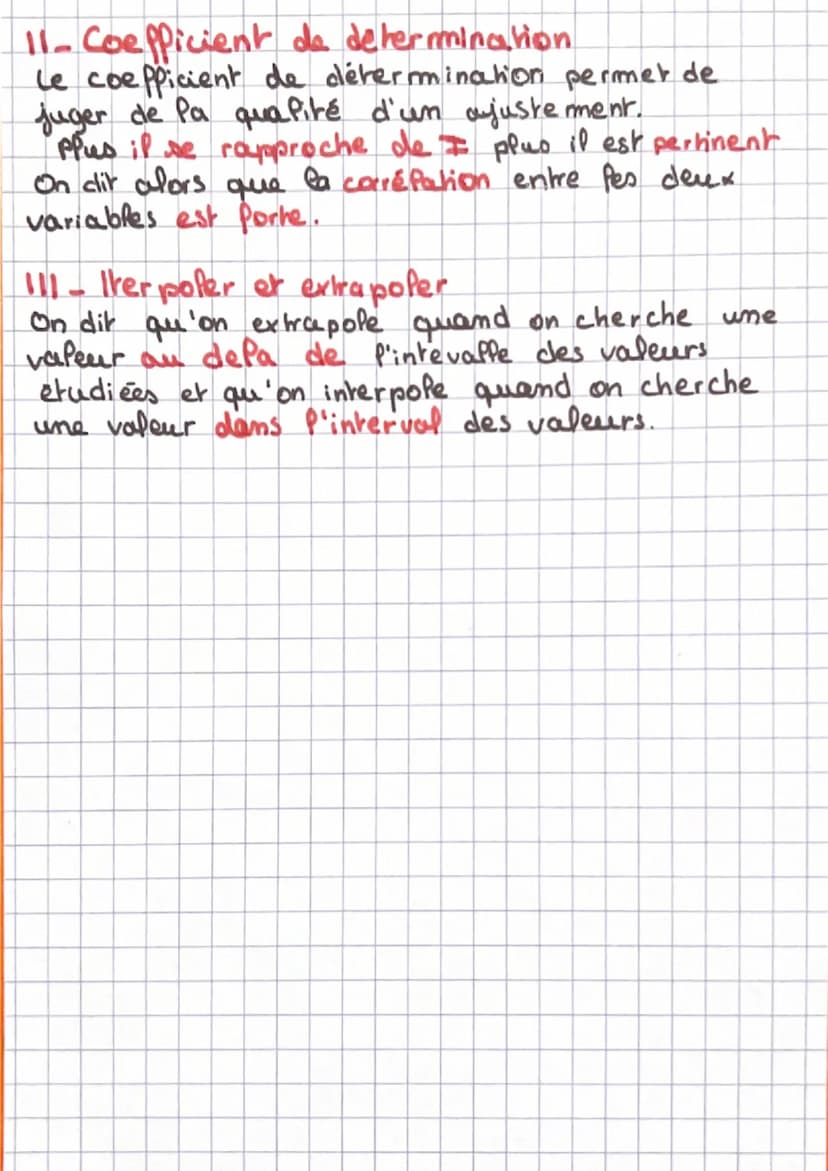 II - Coefficient de determination
Le coefficient de détermination permet de
juger de la qualité d'un ajustement.
Plus il se rapproche de 1 plus il est pertinent
On dit alors que la corrélation entre les deux
variables est forte.
III - Iterpoler et extrapoler
On dit qu'on extrapole quand on cherche une
valeur au dela de l'intevalle des valeurs
étudiées et qu'on interpole quand on cherche
une valeur dans l'interval des valeurs.